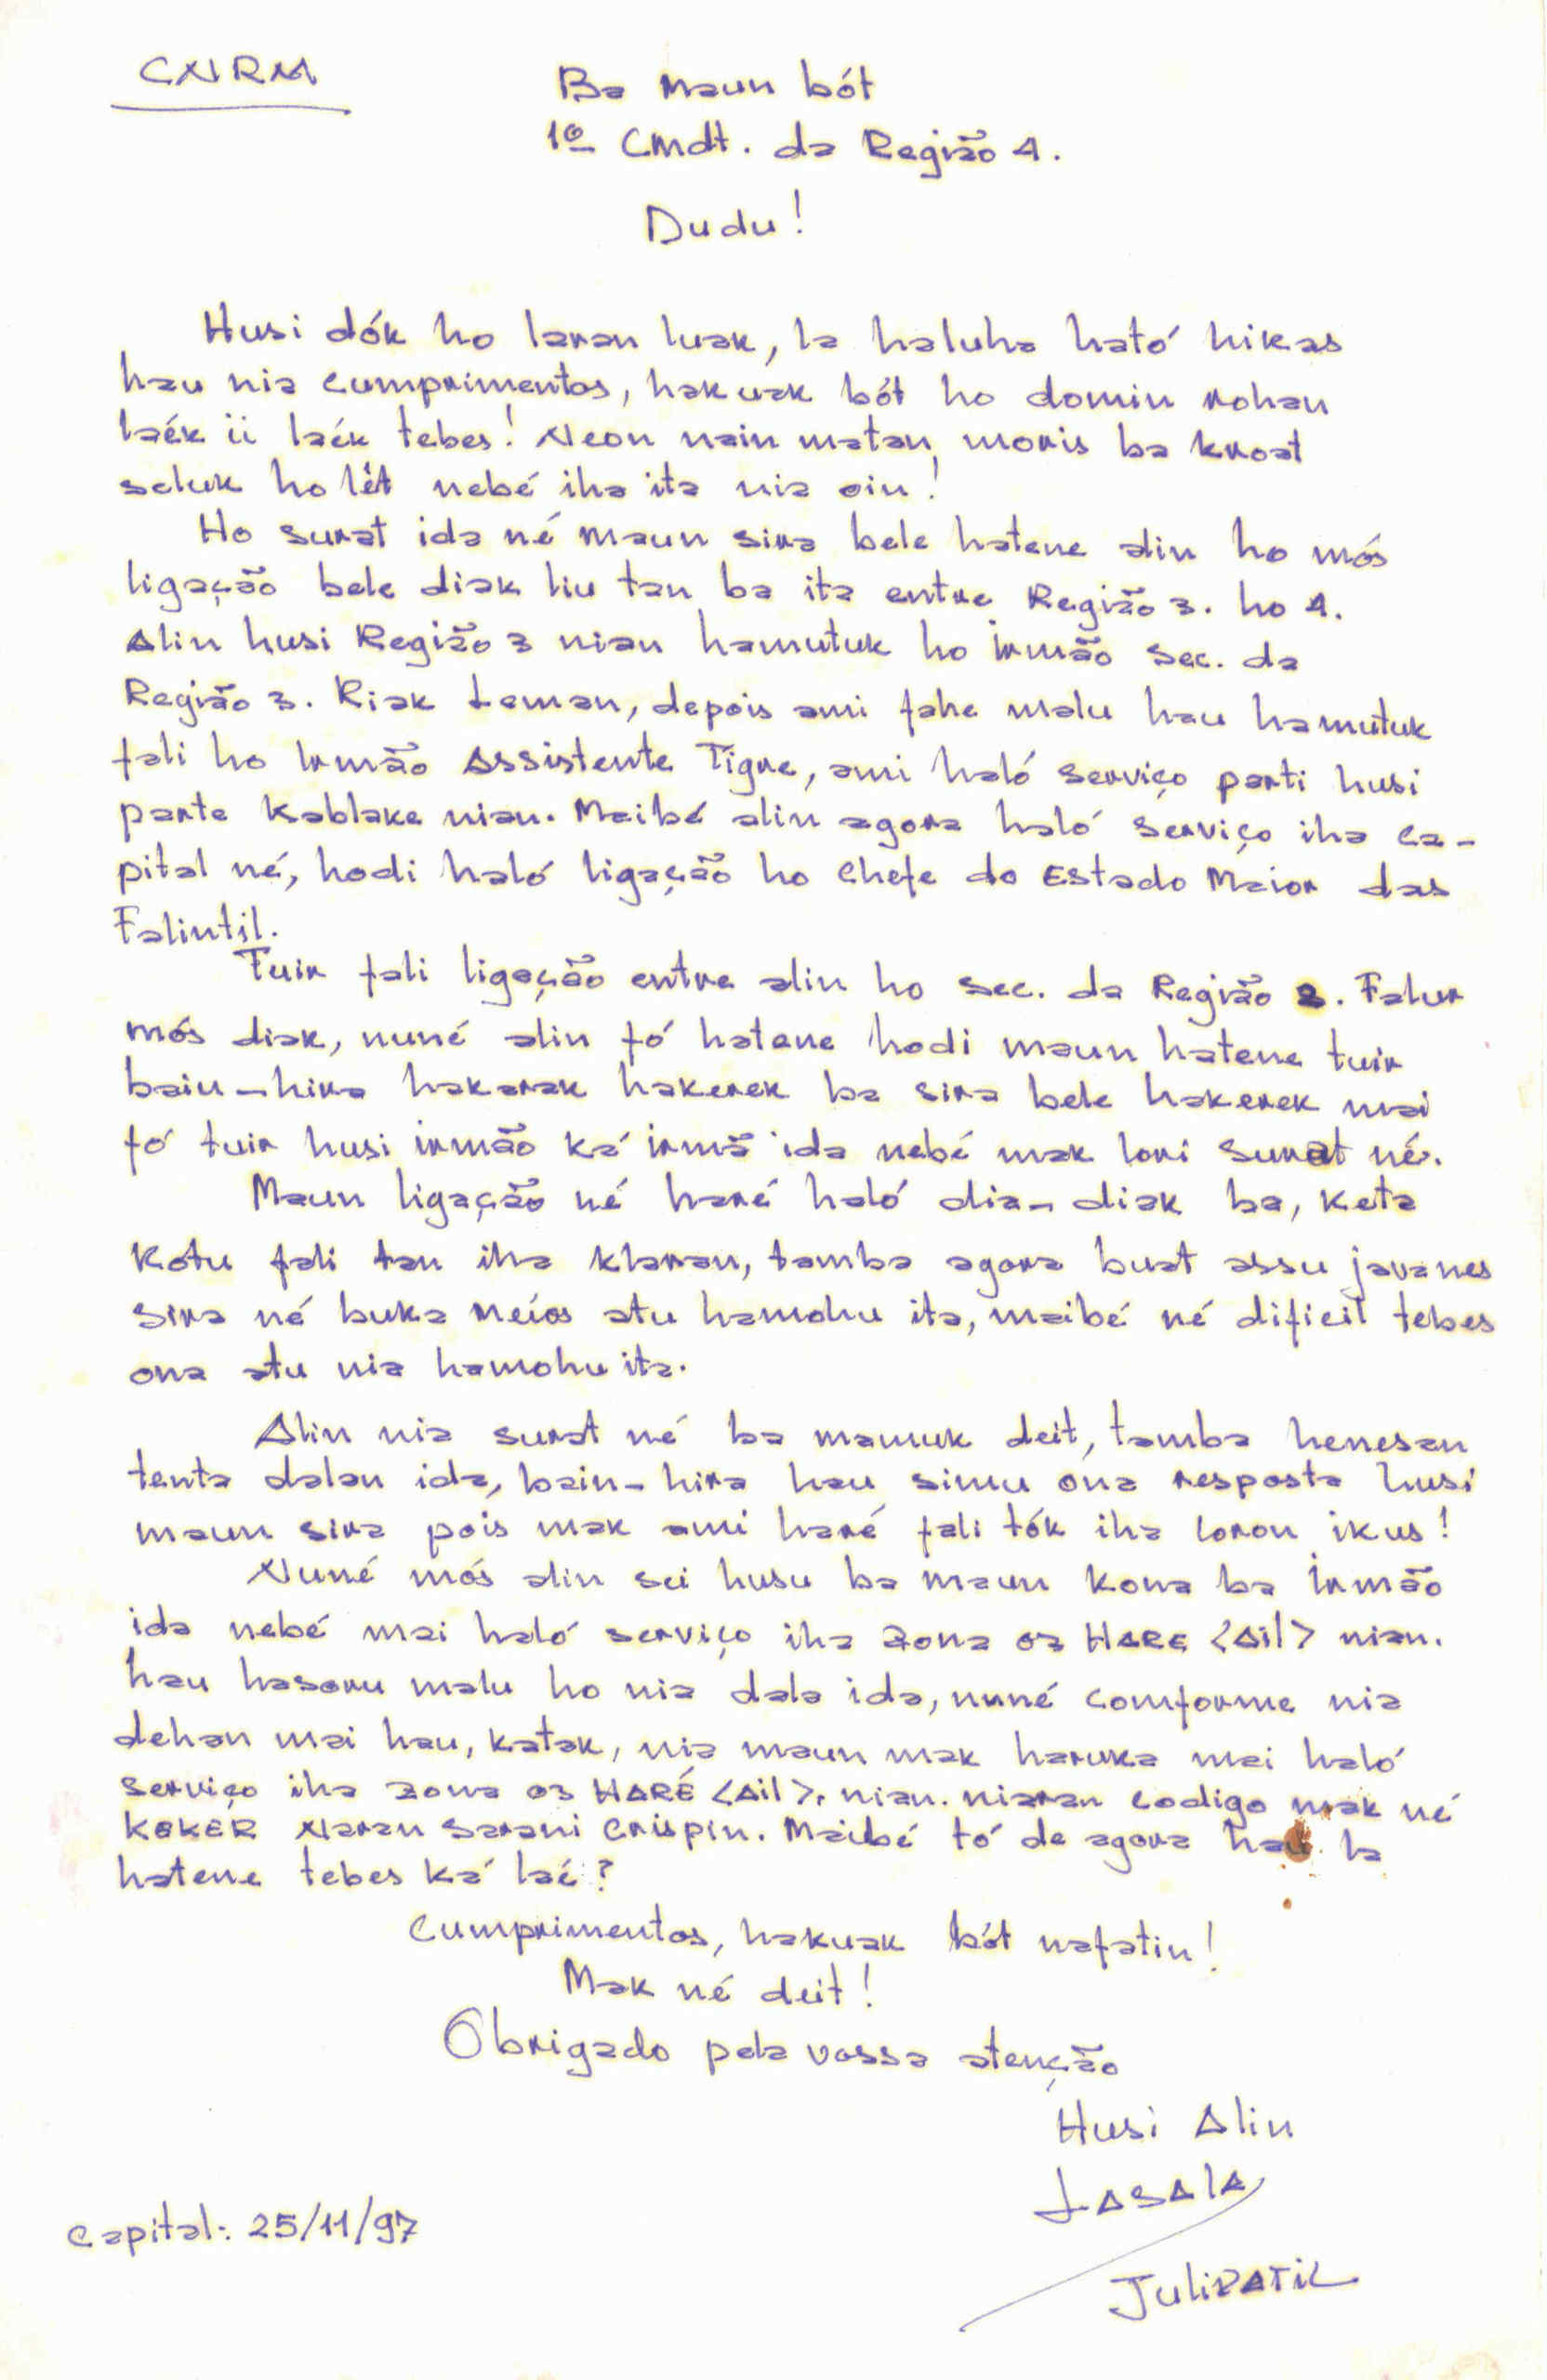 CNRM
Ba Maun bót
1º Cmdt. da Região 4.
Dudu!
Husi dók ho laran luak, la haluhaható hikas
hau nia cumprimentos, hakuak bót ho domin rohan
laék ii laék tebes! Neon nain matan, moris ba kroat
seluk ho lét nebé iha ita nia oin!
Ho surat ida né maun sira bele hatene alin ho mós
ligação bele diak liu tan ba ita entre Região 3. ho 4.
Alin husi Região 3 nian hamutuk ho irmão sec. da
Região 3. Riak Leman, depois ami fahe malu hau hamutuk
fali ho Irmão Assistente Tigre, ami haló serviço parti husi
parte Kablake nian. Maibé alin agora haló serviço iha ca-
pital né, hodi haló ligação ho Chefe do Estado Maior das
Falintil.
Tuir fali ligação entre alin ho sec. da Região 2. Falur
mós diak, nuné alin fó hatene hodi maun hatene tuir
bain-hira hakarak hakerek ba sira bele hakerek mai
fó tuir husi irmão ká irmã ida nebé mak lori surat né.
Maun ligação né haré haló dia-diak ba, keta
kotu fali tan iha klaran, tamba agora buat assu javanes
sira né buka meios atu hamohu ita, maibé né dificil tebes
ona atu nia hamohu ita.
Alin nia surat né ba mamuk deit, tamba henesan
tenta dalan ida, bain-hira hau simu ona resposta husi
maun sira pois mak ami haré fali tók iha loron ikus!
Nuné mós alin sei husu ba maun kona ba Irmão
ida nebé mai haló serviço iha zona 03 HARE <Ail> nian.
hau hasoru malu ho nia dala ida, nuné comforme nia
dehan mai hau, katak, nia maun mak haruka mai haló
serviço iha zona 03 HARÉ <Ail>, nian. niaran codigo mak né
KEKER Naran Sarani Crispin. Maibé tó de agora hau la
hatene tebes ká laé?
Cumprimentos, hakuak bót nafatin!
Mak né deit!
Obrigado pela vossa atenção
Husi Alin
LASALA
Capital: 25/11/97